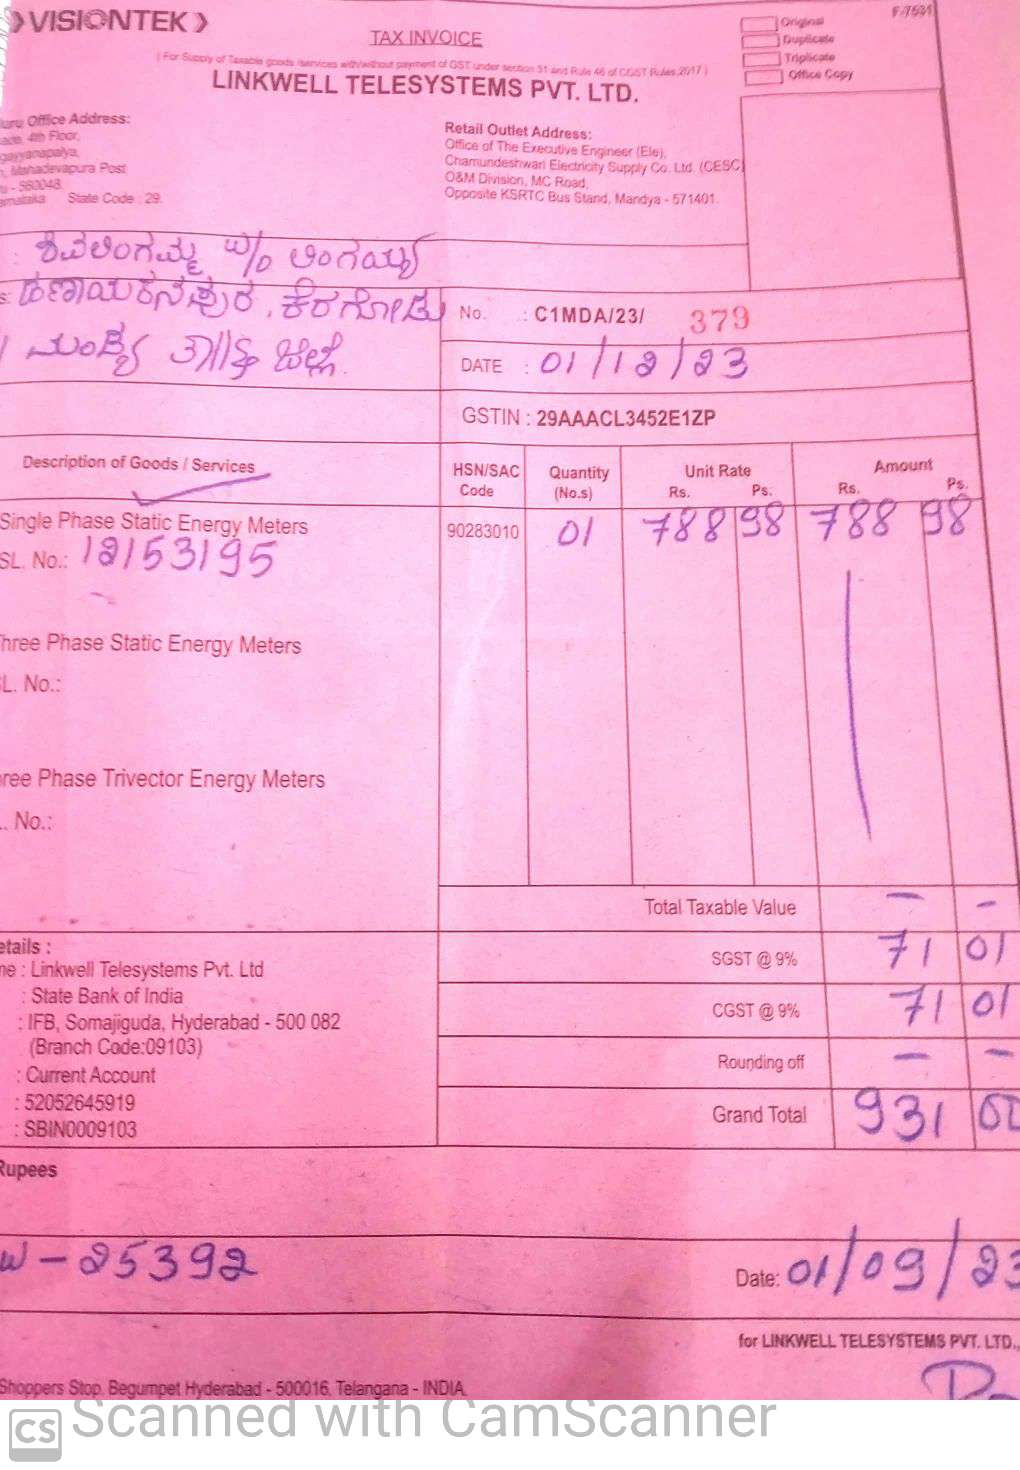 VISIONTEK
F-7531
TAX INVOICE
Original
Duplicate
Triplicate
Office Copy
(For Supply of Taxable goods /services with/without payment of GST under section 31 and Rule 46 of CGST Rules,2017)
LINKWELL TELESYSTEMS PVT. LTD.
Office Address:
4th Floor,
Mahadevapura Post
- 560048.
State Code : 29.
Retail Outlet Address:
Office of The Executive Engineer (Ele),
Chamundeshwari Electricity Supply Co. Ltd. (CESC)
O&M Division, MC Road,
Opposite KSRTC Bus Stand, Mandya - 571401.
: ಶಿವಲಿಂಗಮ್ಮ W/o ಲಿಂಗಯ್ಯ
ಕೆರಗೋಡು
ಮಂಡ್ಯ ತಾ|| ಜಿಲ್ಲೆ.
No. : C1MDA/23/ 379
DATE : 01/12/23
GSTIN : 29AAACL3452E1ZP
Description of Goods / Services HSN/SAC Code Quantity (No.s) Unit Rate Rs. Ps. Amount Rs. Ps.
Single Phase Static Energy Meters 90283010 01 788 98 788 98
SL. No.: 12153195
Three Phase Static Energy Meters
SL. No.:
Phase Trivector Energy Meters
No.:
Total Taxable Value — –
SGST @ 9% 71 01
CGST @ 9% 71 01
Rounding off — –
Grand Total 931 00
: Linkwell Telesystems Pvt. Ltd
: State Bank of India
: IFB, Somajiguda, Hyderabad - 500 082
(Branch Code:09103)
: Current Account
: 52052645919
: SBIN0009103
Rupees
W-25392
Date: 01/09/23
for LINKWELL TELESYSTEMS PVT. LTD.,
Shoppers Stop, Begumpet Hyderabad - 500016, Telangana - INDIA.
CS Scanned with CamScanner